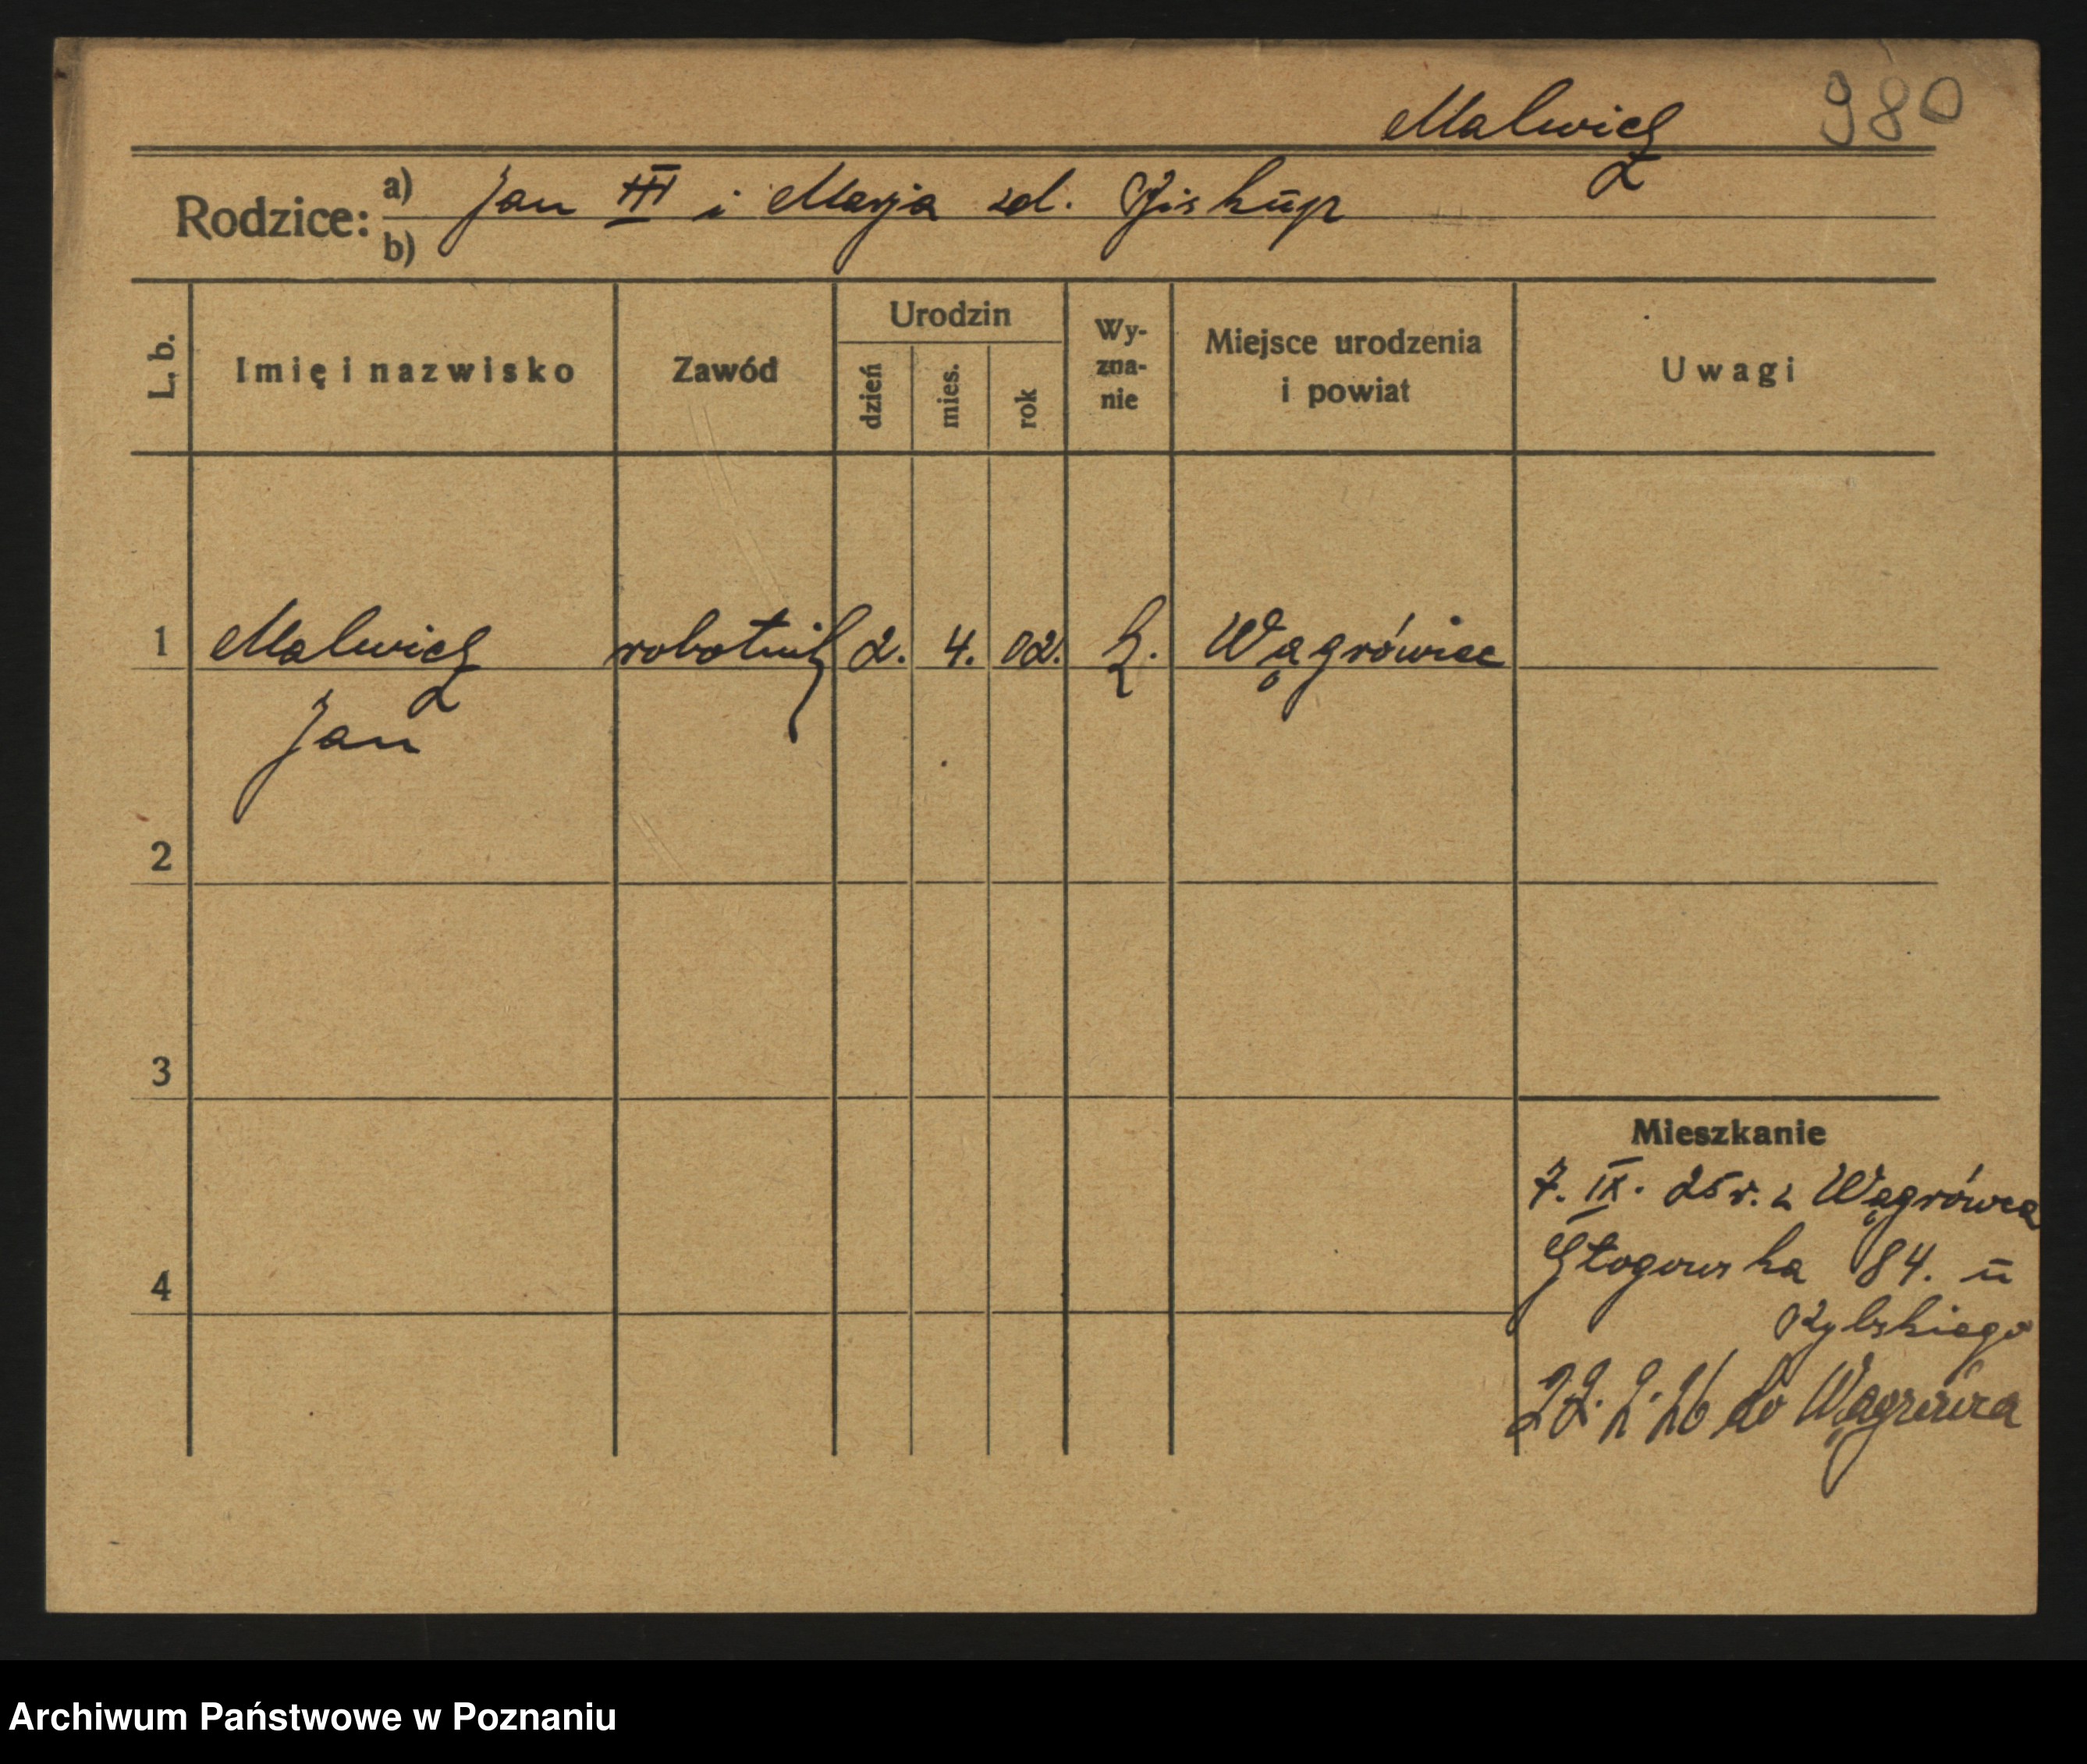 Malwicz 980
Rodzice: a) Jan III i Marja zd. Biskup
b)
L. b. Imię i nazwisko Zawód Urodzin dzień mies. rok Wy-zna-nie Miejsce urodzenia i powiat Uwagi
1 Malwicz robotnik 2. 4. 02. k. Wągrówiec
Jan
2
3
Mieszkanie
7. IX. 25 r. z Wągrówca
Głogowska 84. u
4
Rybskiego
22. 2. 26 do Wągrówca
Archiwum Państwowe w Poznaniu